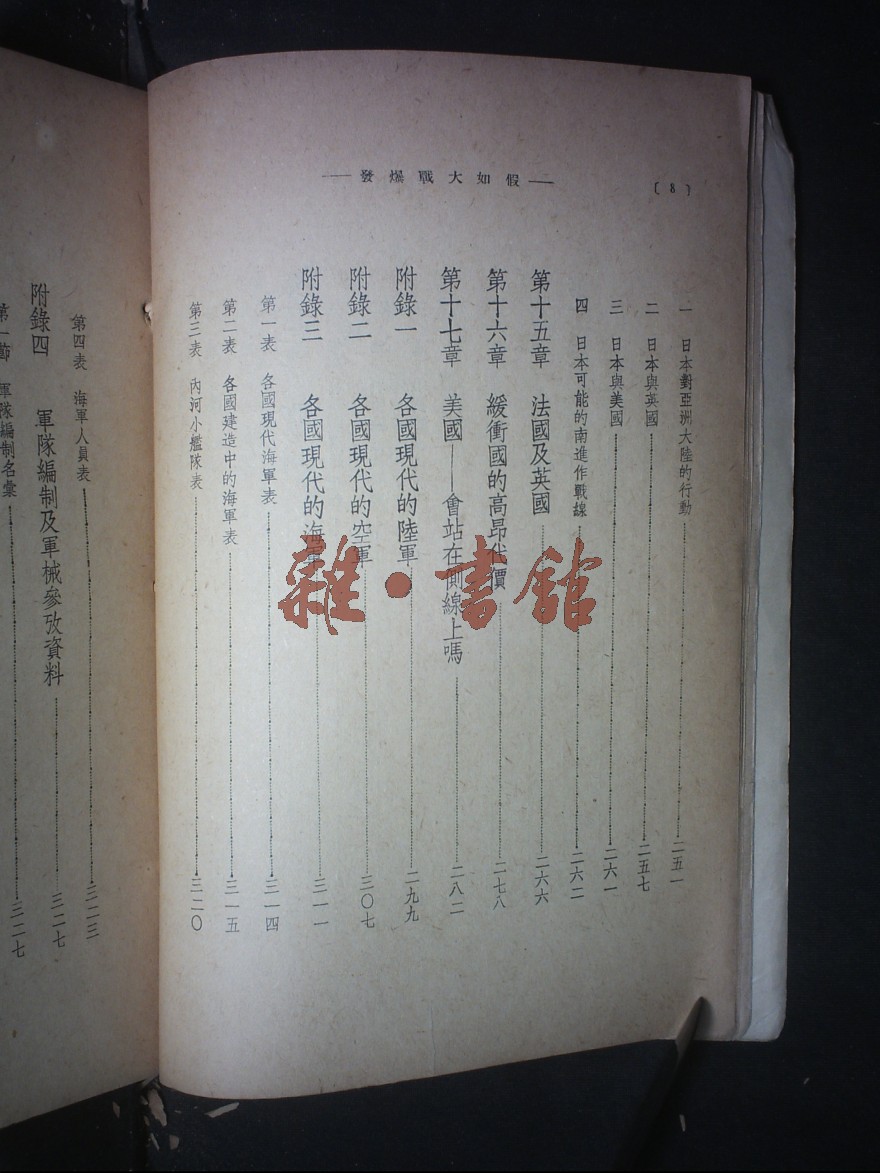 〔8〕
——假如大戰爆發——
一 日本對亞洲大陸的行動……二五一
二 日本與英國……二五七
三 日本與美國……二六一
四 日本可能的南進作戰線……二六二
第十五章 法國及英國……二六六
第十六章 緩衝國的高昂代價……二七八
第十七章 美國——會站在側線上嗎……二八二
附錄一 各國現代的陸軍……二九九
附錄二 各國現代的空軍……三〇七
附錄三 各國現代的海軍……三一一
第一表 各國現代海軍表……三一四
第二表 各國建造中的海軍表……三一五
第三表 內河小艦隊表……三二〇
第四表 海軍人員表……三二三
附錄四 軍隊編制及軍械參攷資料……三二七
第一節 軍隊編制名彙……三二七
雜·書館